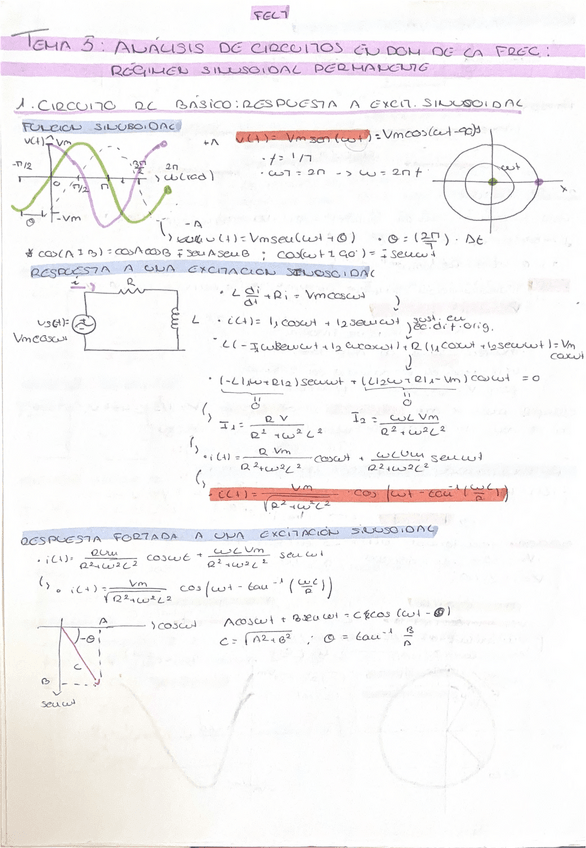 FEC7
TEMA 5: ANÁLISIS DE CIRCUITOS EN DOM DE LA FREC.:
RÉGIMEN SINUSOIDAL PERMANENTE
1. CIRCUITO RL BÁSICO: RESPUESTA A EXCIT. SINUSOIDAL
FUNCION SINUSOIDAL
v(t) = Vm sen(ωt) = Vm cos(ωt-90º)
v(t) Vm
-π/2 0 π/2 π 3π/2 2π ω(rad)
θ -Vm
· f = 1/T
· ωT = 2π -> ω = 2πf
ωt
x
v(t) = Vm sen(ωt + θ) · θ = (2π/T) · Δt
* cos(A±B) = cosAcosB ∓ senAsenB ; cos(ωt±90º) = ∓senωt
RESPUESTA A UNA EXCITACION SINUSOIDAL
i R
vs(t) = Vm cosωt
L
· L di/dt + Ri = Vm cosωt
· i(t) = I₁ cosωt + I₂ senωt sust. en ec. dif. orig.
· L(-I₁ωsenωt + I₂ωcosωt) + R(I₁cosωt + I₂senωt) = Vm cosωt
· (-LI₁ω + RI₂) senωt + (LI₂ω + RI₁ - Vm) cosωt = 0
0 0
I₁ = R V / R² + ω²L² I₂ = ωL Vm / R² + ω²L²
· i(t) = R Vm / R² + ω²L² cosωt + ωL Vm / R² + ω²L² senωt
· i(t) = Vm / √R² + ω²L² cos (ωt - tan⁻¹(ωL/R))
RESPUESTA FORZADA A UNA EXCITACIÓN SINUSOIDAL
· i(t) = RVm / R² + ω²L² cosωt + ωL Vm / R² + ω²L² senωt
· i(t) = Vm / √R² + ω²L² cos(ωt - tan⁻¹(ωL/R))
A cosωt
-θ
C
B
senωt
Acosωt + Bsenωt = C cos (ωt - θ)
C = √A² + B² ; θ = tan⁻¹ B/A